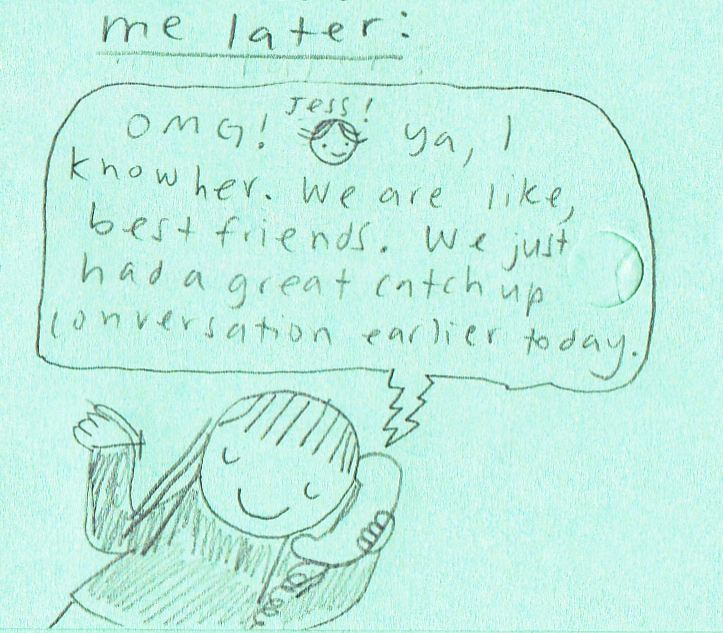 me later:
Jess!
OMG! ya, I
know her. We are like,
best friends. We just
had a great catch up
conversation earlier today.